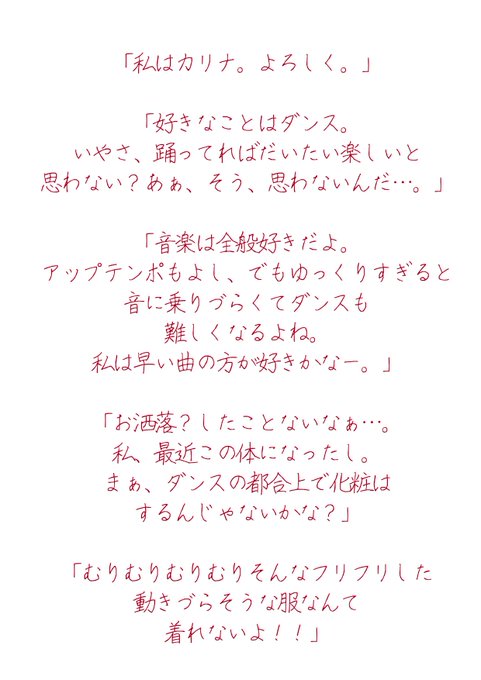 「私はカリナ。よろしく。」
「好きなことはダンス。
いやさ、踊ってればだいたい楽しいと
思わない？あぁ、そう、思わないんだ…。」
「音楽は全般好きだよ。
アップテンポもよし、でもゆっくりすぎると
音に乗りづらくてダンスも
難しくなるよね。
私は早い曲の方が好きかなー。」
「お洒落？したことないなぁ…。
私、最近この体になったし。
まぁ、ダンスの都合上で化粧は
するんじゃないかな？」
「むりむりむりむりそんなフリフリした
動きづらそうな服なんて
着れないよ！！」